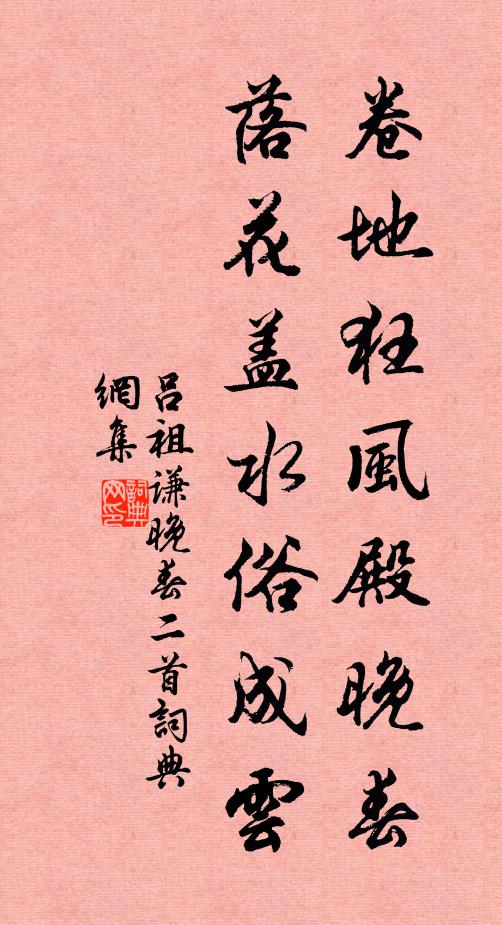 卷地狂風殿晚春
落花盖水俗成雲
吕祖谦晚春二首詞典
網集
詞典網印